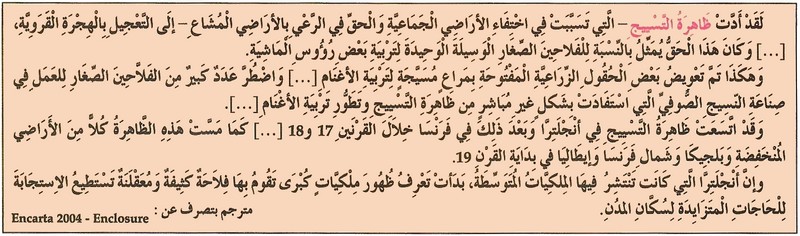 لَقَدْ أَدَّتْ ظَاهِرَةُ التَّسْيِيجِ – الَّتِي تَسَبَّبَتْ فِي اخْتِفَاءِ الأَرَاضِي الْجَمَاعِيَّةِ وَالْحَقِّ فِي الرَّعْيِ بِالأَرَاضِي الْمُشَاعِ – إِلَى التَّعْجِيلِ بِالْهِجْرَةِ الْقَرَوِيَّةِ،
[...] وَكَانَ هَذَا الْحَقُّ يُمَثِّلُ بِالنِّسْبَةِ لِلْفَلاَّحِينَ الصِّغَارِ الْوَسِيلَةَ الْوَحِيدَةَ لِتَرْبِيَةِ بَعْضِ رُؤُوسِ الْمَاشِيَةِ.
وَهَكَذَا تَمَّ تَعْوِيضُ بَعْضِ الْحُقُولِ الزِّرَاعِيَّةِ الْمَفْتُوحَةِ بِمَرَاعٍ مُسَيَّجَةٍ لِتَرْبِيَةِ الأَغْنَامِ [...] وَاضْطُرَّ عَدَدٌ كَبِيرٌ مِنَ الْفَلاَّحِينَ الصِّغَارِ لِلْعَمَلِ فِي
صِنَاعَةِ النَّسِيجِ الصُّوفِيِّ الَّتِي اسْتَفَادَتْ بِشَكْلٍ غَيْرِ مُبَاشِرٍ مِنْ ظَاهِرَةِ التَّسْيِيجِ وَتَطَوُّرِ تَرْبِيَةِ الأَغْنَامِ [...].
وَقَدْ اتَّسَعَتْ ظَاهِرَةُ التَّسْيِيجِ فِي أَنْجَلْتِرَا وَبَعْدَ ذَلِكَ فِي فَرَنْسَا خِلاَلَ الْقَرْنَيْنِ 17 و18 [...] كَمَا مَسَّتْ هَذِهِ الظَّاهِرَةُ كُلاًّ مِنَ الأَرَاضِي
الْمُنْخَفِضَةِ وَبَلْجِيكَا وَشَمَالِ فَرَنْسَا وَإِيطَالِيَا فِي بِدَايَةِ الْقَرْنِ 19.
وَإِنَّ أَنْجَلْتِرَا الَّتِي كَانَتْ تَنْتَشِرُ فِيهَا الْمِلْكِيَّاتُ الْمُتَوَسِّطَةُ، بَدَأَتْ تَعْرِفُ ظُهُورَ مِلْكِيَّاتٍ كُبْرَى تَقُومُ بِهَا فِلاَحَةٌ كَثِيفَةٌ وَمُعَقْلَنَةٌ تَسْتَطِيعُ الاسْتِجَابَةَ
لِلْحَاجَاتِ الْمُتَزَايِدَةِ لِسُكَّانِ الْمُدُنِ.
مترجم بتصرف عن : Encarta 2004 - Enclosure